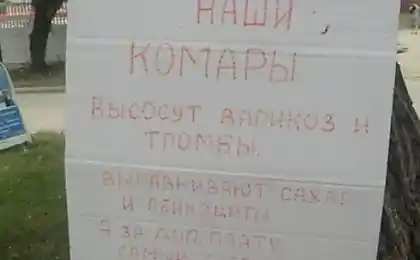 НАШИ
КОМАРЫ
ВЫСОСУТ ВАРИКОЗ И
ТРОМБЫ.
ВЫРАВНИВАЮТ САХАР
И ЛЕЙКОЦИТЫ
А ЗА ДОП. ПЛАТУ
САМЫЙ